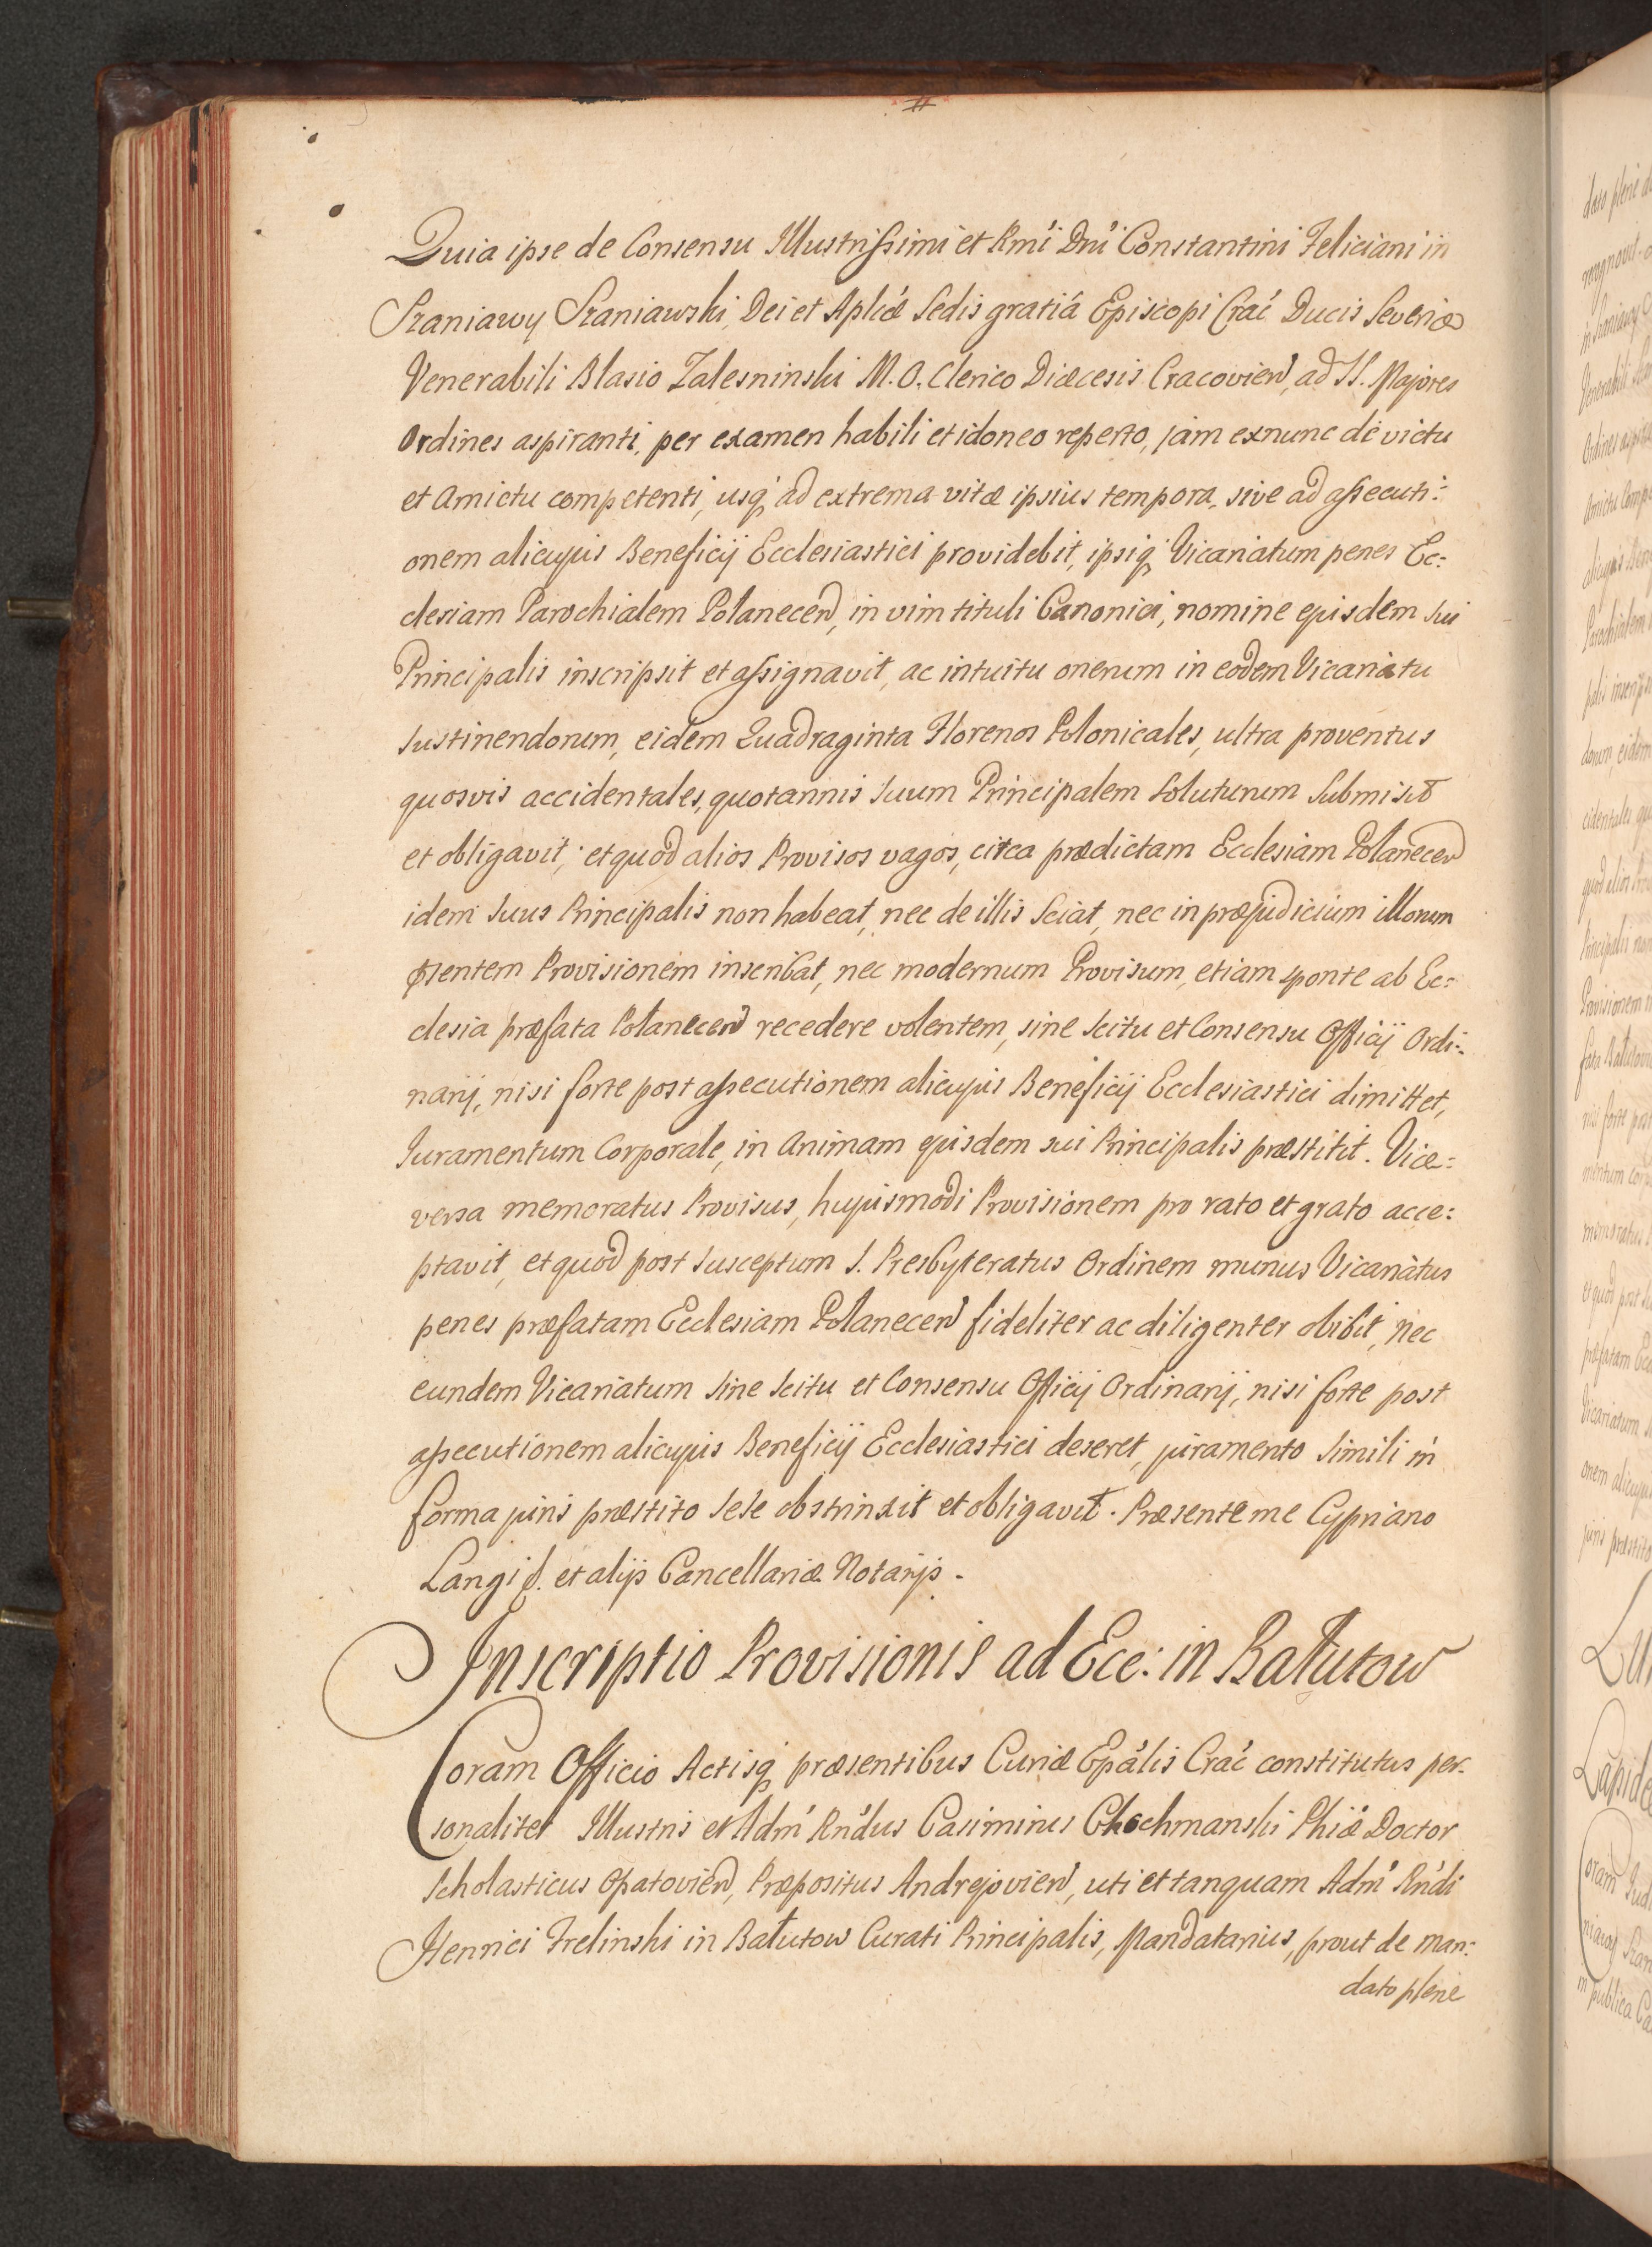 Quia ipse de Consensu Illustrissimi et Rmi Dni Constantini Feliciani in
Szaniawy Szaniawski, Dei et Aplicæ Sedis gratiâ Episcopi Crac Ducis Severiæ
Venerabili Blasio Zalesninski M. O. Clerico Diæcesis Cracovien, ad SS. Majores
Ordines aspiranti, per examen habili et idoneo reperto, jam exnunc de victu
et Amictu competenti, usq ad extrema vitæ ipsius tempora, sive ad assecuti:
onem alicujus Beneficij Ecclesiastici providebit, ipsiq Vicariatum penes Ec:
clesiam Parochialem Polanecen, in vim tituli Canonici, nomine ejusdem sui
Principalis inscripsit et assignavit, ac intuitu onerum in eodem Vicariatu
sustinendorum, eidem Quadraginta Florenos Polonicales, ultra proventus
quosvis accidentales, quotannis suum Principalem soluturum submisit
et obligavit; et quod alios Provisos vagos, circa prædictam Ecclesiam Polanecen
idem suus Principalis non habeat, nec de illis sciat, nec in præjudicium illorum
pñsentem Provisionem inscribat, nec modernum Provisum, etiam sponte ab Ec:
clesia præfata Polanecen recedere volentem, sine scitu et Consensu Officij Ordi:
narij, nisi forte post assecutionem alicujus Beneficij Ecclesiastici dimittet,
Juramentum Corporale, in Animam ejusdem sui Principalis præstitit. Vice:
versa memoratus Provisus, hujusmodi Provisionem pro rato et grato acce:
ptavit, et quod post susceptum S. Presbyteratus Ordinem munus Vicariatus
penes præfatam Ecclesiam Polanecen fideliter ac diligenter obibit, nec
eundem Vicariatum sine scitu et Consensu Officij Ordinarij, nisi forte post
assecutionem alicujus Beneficij Ecclesiastici deseret, juramento simili in
forma juris præstito sese obstrinxit et obligavit. Præsente me Cypriano
Langi et alijs Cancellariæ Notarijs.
Inscriptio Provisionis ad Ecc: in Bałutow
Coram Officio Actisq præsentibus Curiæ Epalis Crac constitutus per:
sonaliter Illustris et Adm Rndus Casimirus Chochmanski Phiæ Doctor
Scholasticus Opatovien, Præpositus Andrejovien, uti et tanquam Adm Rndi
Henrici Trelinski in Bałutow Curati Principalis, Mandatarius, prout de man:
dato plene